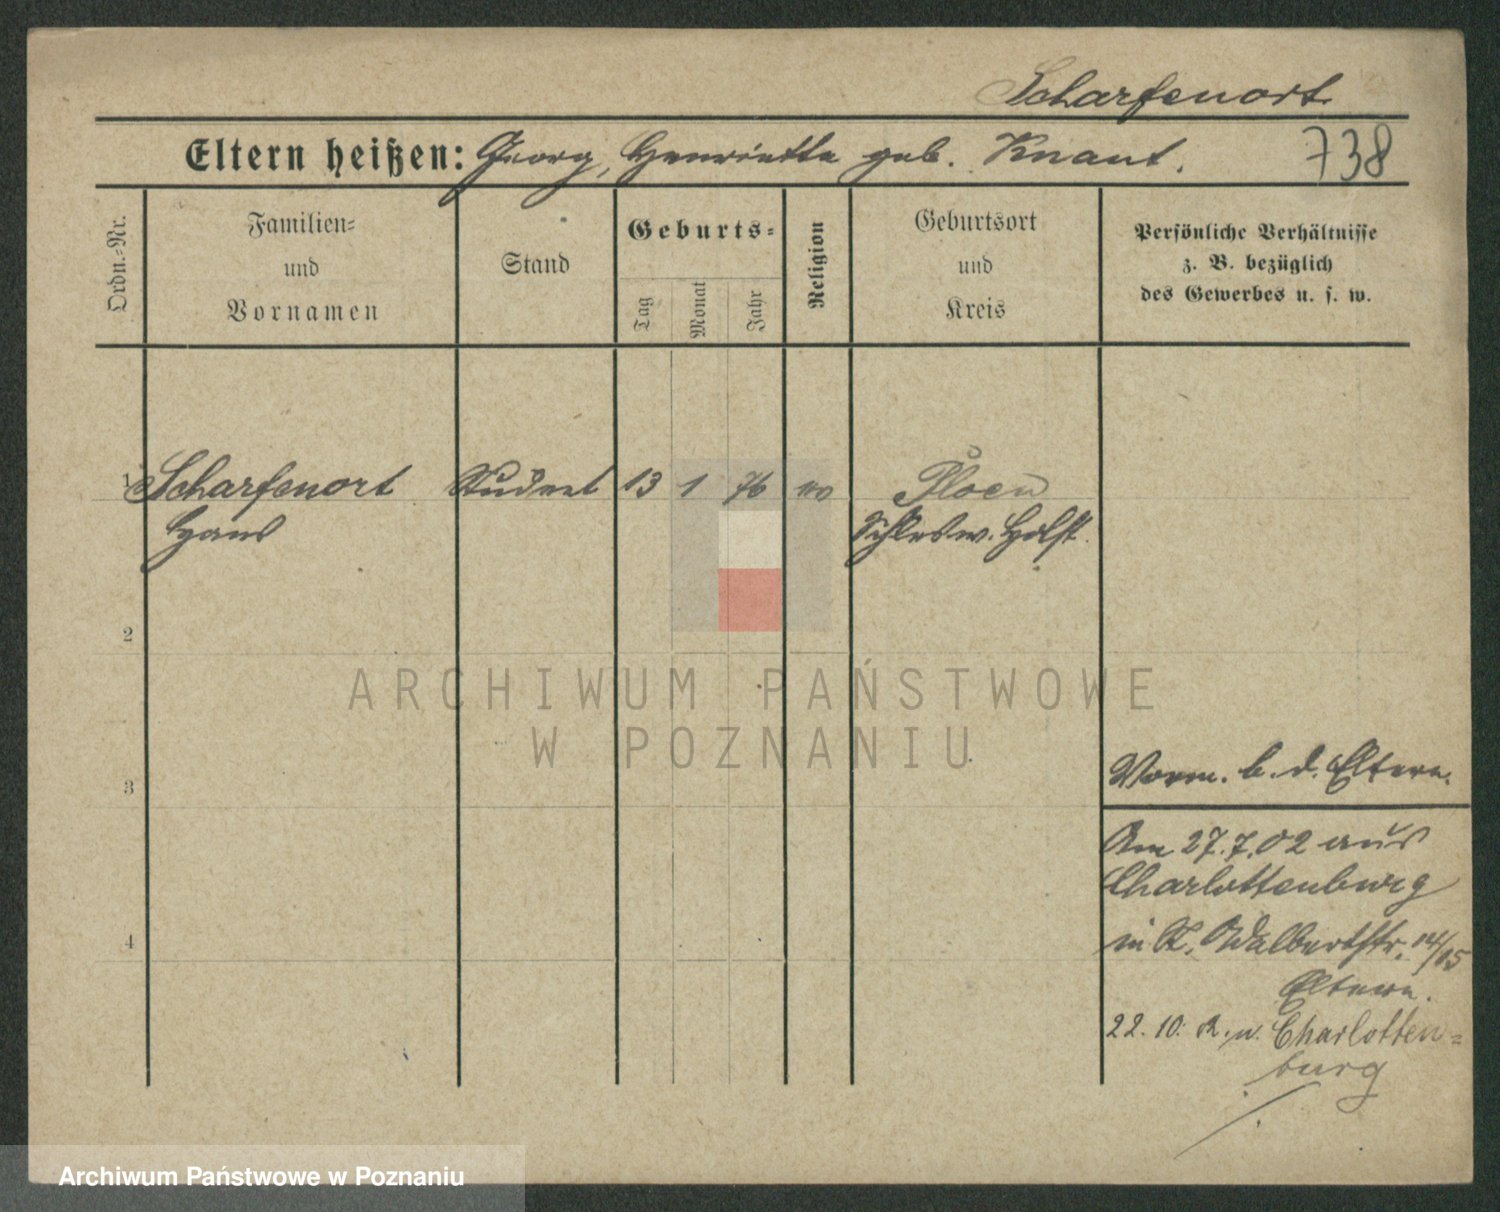 Scharfenort
Eltern heißen: Georg, Henriette geb. Knaut.
738
Ordn.=Nr.
Familien=
und
Vornamen
Stand
Geburts=
Tag
Monat
Jahr
Religion
Geburtsort
und
Kreis
Persönliche Verhältnisse
z. B. bezüglich
des Gewerbes u. s. w.
1 Scharfenort Student 13 1 76 Ploen
Hans Schlesw. Holst.
2
3
4
Vorm. b. d. Eltern.
Am 27.7.02 aus
Charlottenburg
in Walbertstr. 14/15
Eltern.
22. 10. n. Charlotten=
burg
ARCHIWUM PAŃSTWOWE
W POZNANIU
Archiwum Państwowe w Poznaniu